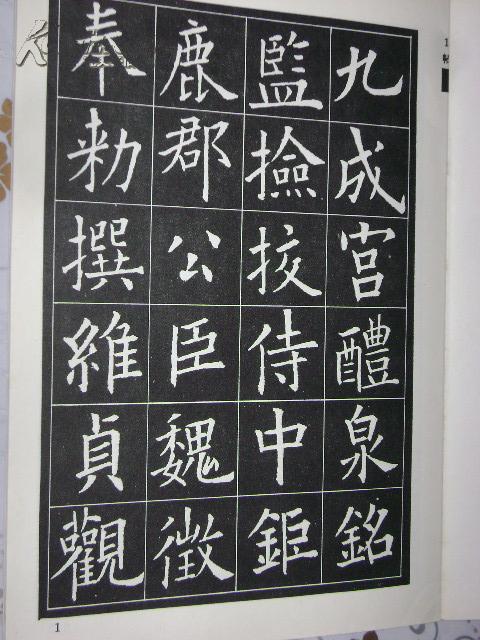 九成宮醴泉銘
監撿挍侍中鉅
鹿郡公臣魏徵
奉勑撰維貞觀
1